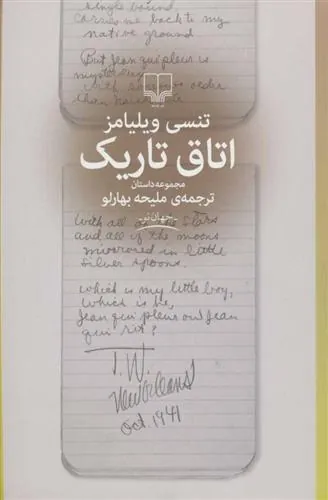 single bound
carries me back to my
native ground
But Jean qui pleur is
mysterious
with
order
than
تنسی ویلیامز
اتاق تاریک
مجموعه داستان
ترجمه‌ی ملیحه بهارلو
جهان نو
With all of the Stars
and all of the moons
mirrored in little
Silver spoons.
Which is my little boy,
which is he,
Jean qui pleur ou Jean
qui rit?
T.W.
New Orleans
Oct. 1941